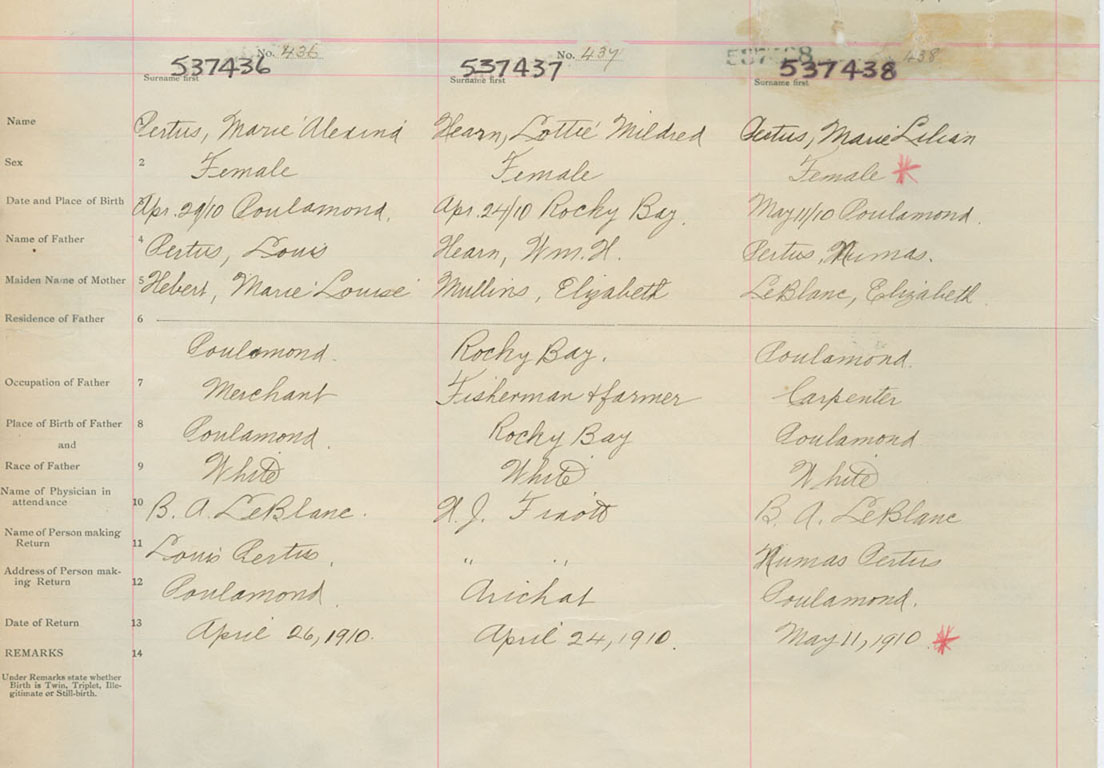 No. 436 No. 437 438
537436 537437 537438
Surname first Surname first Surname first
Name Pertus, Marie Alexina Hearn, Lottie Mildred Pertus, Marie Lilian
Sex 2 Female Female Female *
Date and Place of Birth Apr. 20/10 Poulamond. Apr. 24/10 Rocky Bay. May 11/10 Poulamond.
Name of Father 4 Pertus, Louis Hearn, Wm. H. Pertus, Numas.
Maiden Name of Mother 5 Hebert, Marie Louise Mullins, Elizabeth LeBlanc, Elizabeth
Residence of Father 6
Poulamond. Rocky Bay. Poulamond.
Occupation of Father 7 Merchant Fisherman + farmer Carpenter
Place of Birth of Father 8 Poulamond. Rocky Bay Poulamond
and
Race of Father 9 White White White
Name of Physician in
attendance 10 B. A. LeBlanc. J. B. A. LeBlanc
Name of Person making
Return 11 Louis Pertus. " " Numas Pertus
Address of Person mak-
ing Return 12 Poulamond. Arichat Poulamond.
Date of Return 13 April 26, 1910. April 24, 1910. May 11, 1910 *
REMARKS 14
Under Remarks state whether
Birth is Twin, Triplet, Ille-
gitimate or Still-birth.